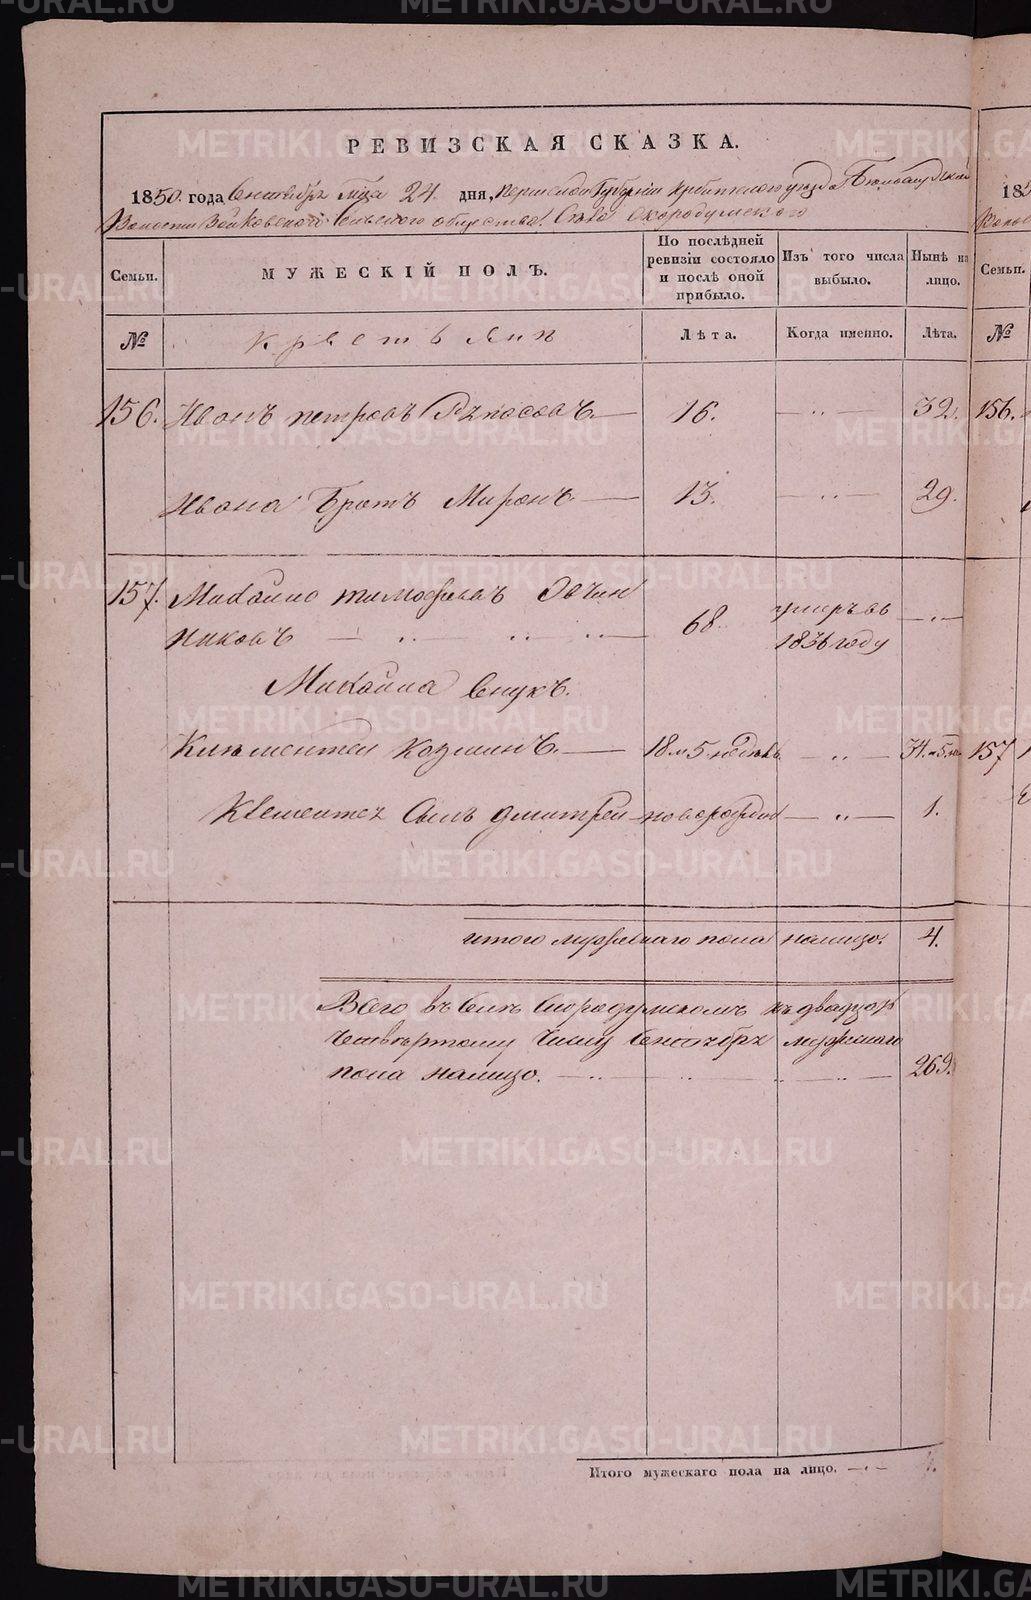 METRIKI.GASO-URAL.RU
РЕВИЗСКАЯ СКАЗКА.
1850 года Сентября м-ца 24 дня, Пермской Губернии Ирбитского уезда
Волости Зайковского Сельского общества. Села Скородумского
Семьи.
МУЖЕСКІЙ ПОЛЪ.
По послѣдней ревизіи состояло и послѣ оной прибыло.
Изъ того числа выбыло.
Нынѣ на лицо.
Семьи.
№
Крестьянъ
Лѣта.
Когда именно.
Лѣта.
№
156. Иванъ Петровъ 16. 32. 156.
Ивана Братъ Миронъ 13. 29.
157. Михайло Тимофеевъ Овчин
никовъ 68. умеръ въ 1836 году
Михайла внукъ.
Клементей Козминъ. 18. и 5. недель 34. и 5. 157
Клементея Сынъ Дмитрей новорожден 1.
итого мужескаго пола налицо. 4.
Всего въ Селе Скородумскомъ къ двадцать
Четвертому Числу Сентября мужескаго
пола налицо. 269.
Итого мужескаго пола на лицо. 4.